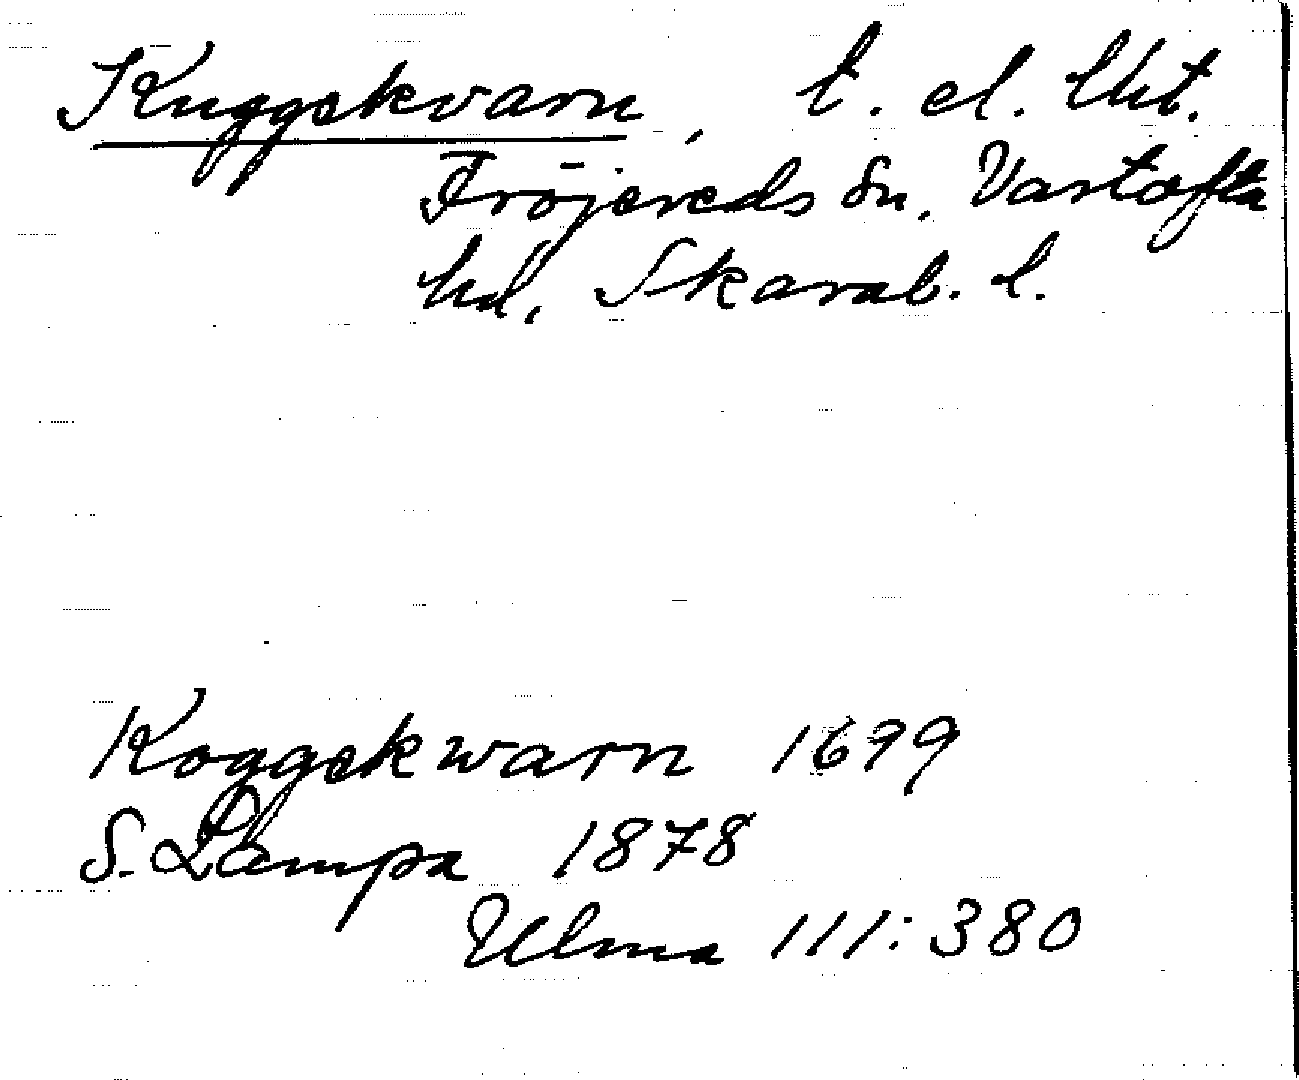 Kuggekvarn, t. el. Utt.
Fröjereds sn, Vartofta
hd, Skarab. l.
Koggekwarn 1699
S. Lampa 1878
Ulma 111:380